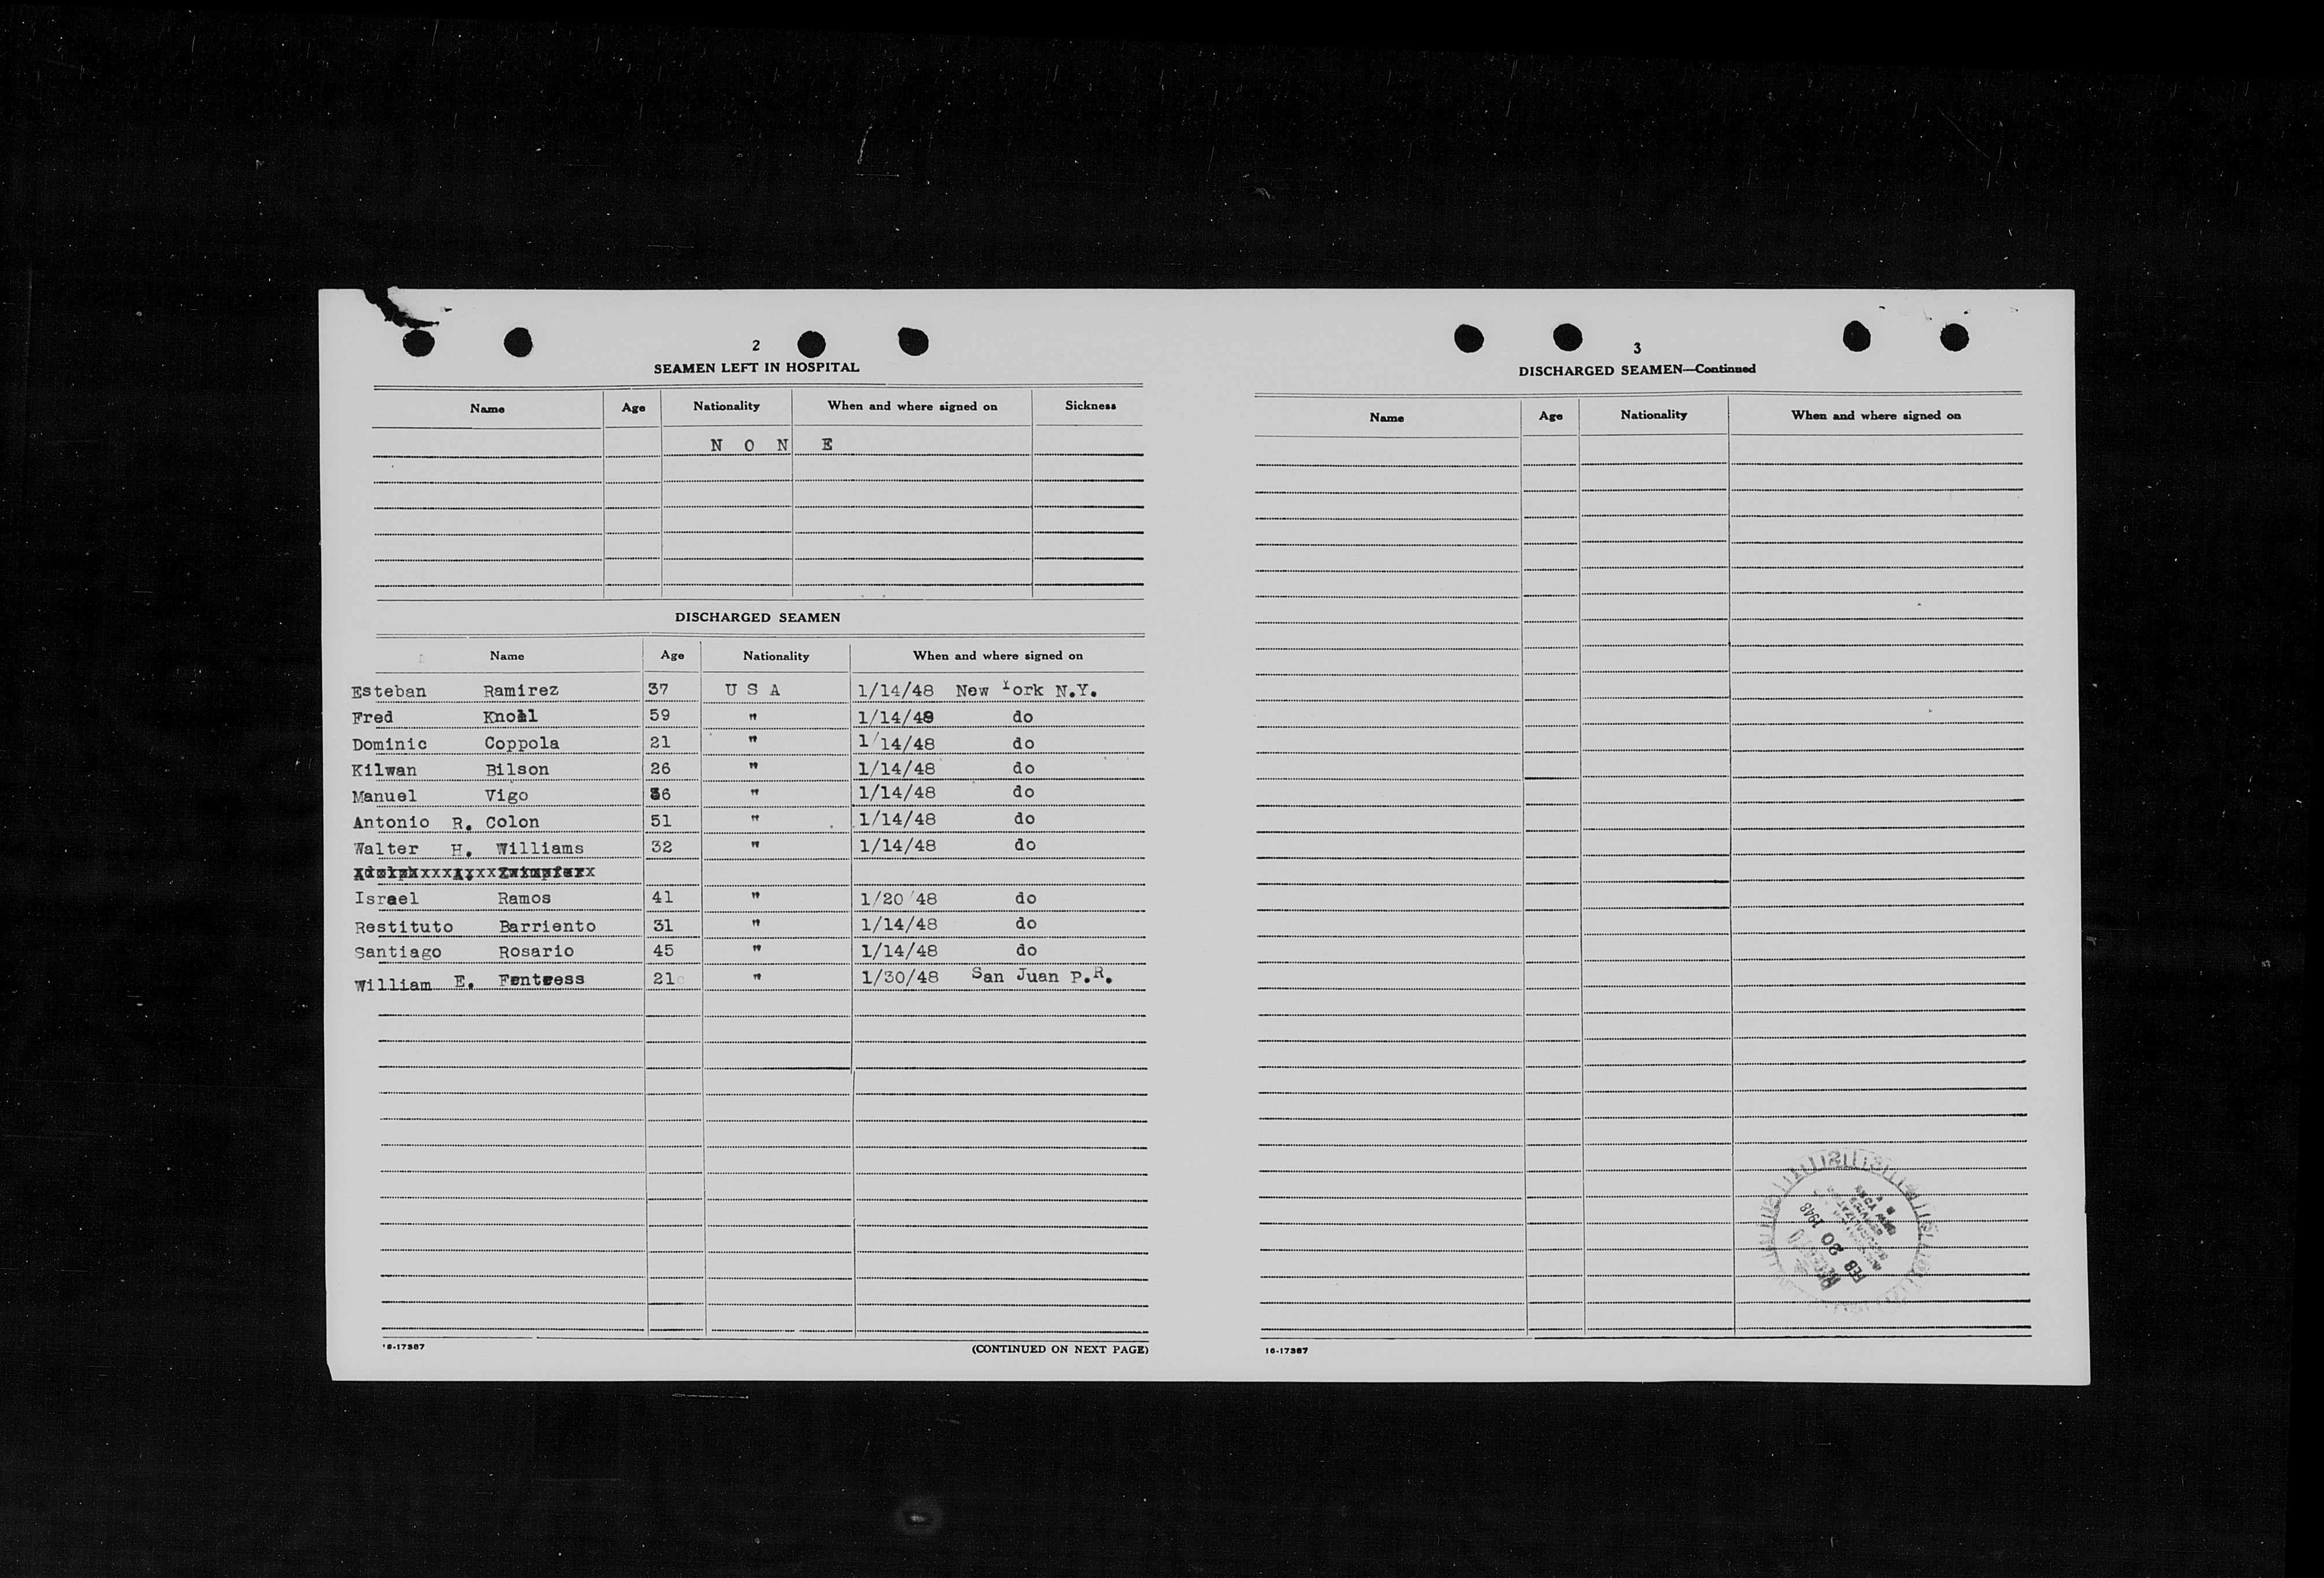 2
SEAMEN LEFT IN HOSPITAL
Name Age Nationality When and where signed on Sickness
N O N E
DISCHARGED SEAMEN
Name Age Nationality When and where signed on
Esteban Ramirez 37 U S A 1/14/48 New York N.Y.
Fred Knoll 59 " 1/14/48 do
Dominic Coppola 21 " 1/14/48 do
Kilwan Bilson 26 " 1/14/48 do
Manuel Vigo 36 " 1/14/48 do
Antonio R. Colon 51 " 1/14/48 do
Walter H. Williams 32 " 1/14/48 do
Israel Ramos 41 " 1/20/48 do
Restituto Barriento 31 " 1/14/48 do
Santiago Rosario 45 " 1/14/48 do
William E. Fentress 21 " 1/30/48 San Juan P.R.
16-17387
(CONTINUED ON NEXT PAGE)
3
DISCHARGED SEAMEN—Continued
Name Age Nationality When and where signed on
FEB 20 1948
16-17387